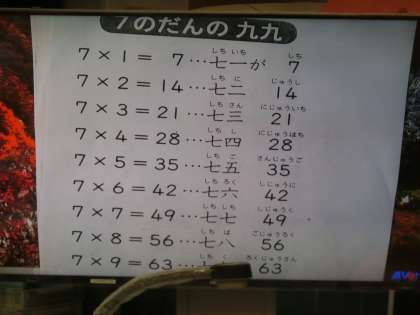 7のだんの 九九
しち いち しち
7 × 1 = 7 … 七一が 7
しち に じゅうし
7 × 2 = 14 … 七二 14
しち さん にじゅういち
7 × 3 = 21 … 七三 21
しち し にじゅうはち
7 × 4 = 28 … 七四 28
しち ご さんじゅうご
7 × 5 = 35 … 七五 35
しち ろく しじゅうに
7 × 6 = 42 … 七六 42
しち しち しじゅうく
7 × 7 = 49 … 七七 49
しち は ごじゅうろく
7 × 8 = 56 … 七八 56
しち く ろくじゅうさん
7 × 9 = 63 … 63